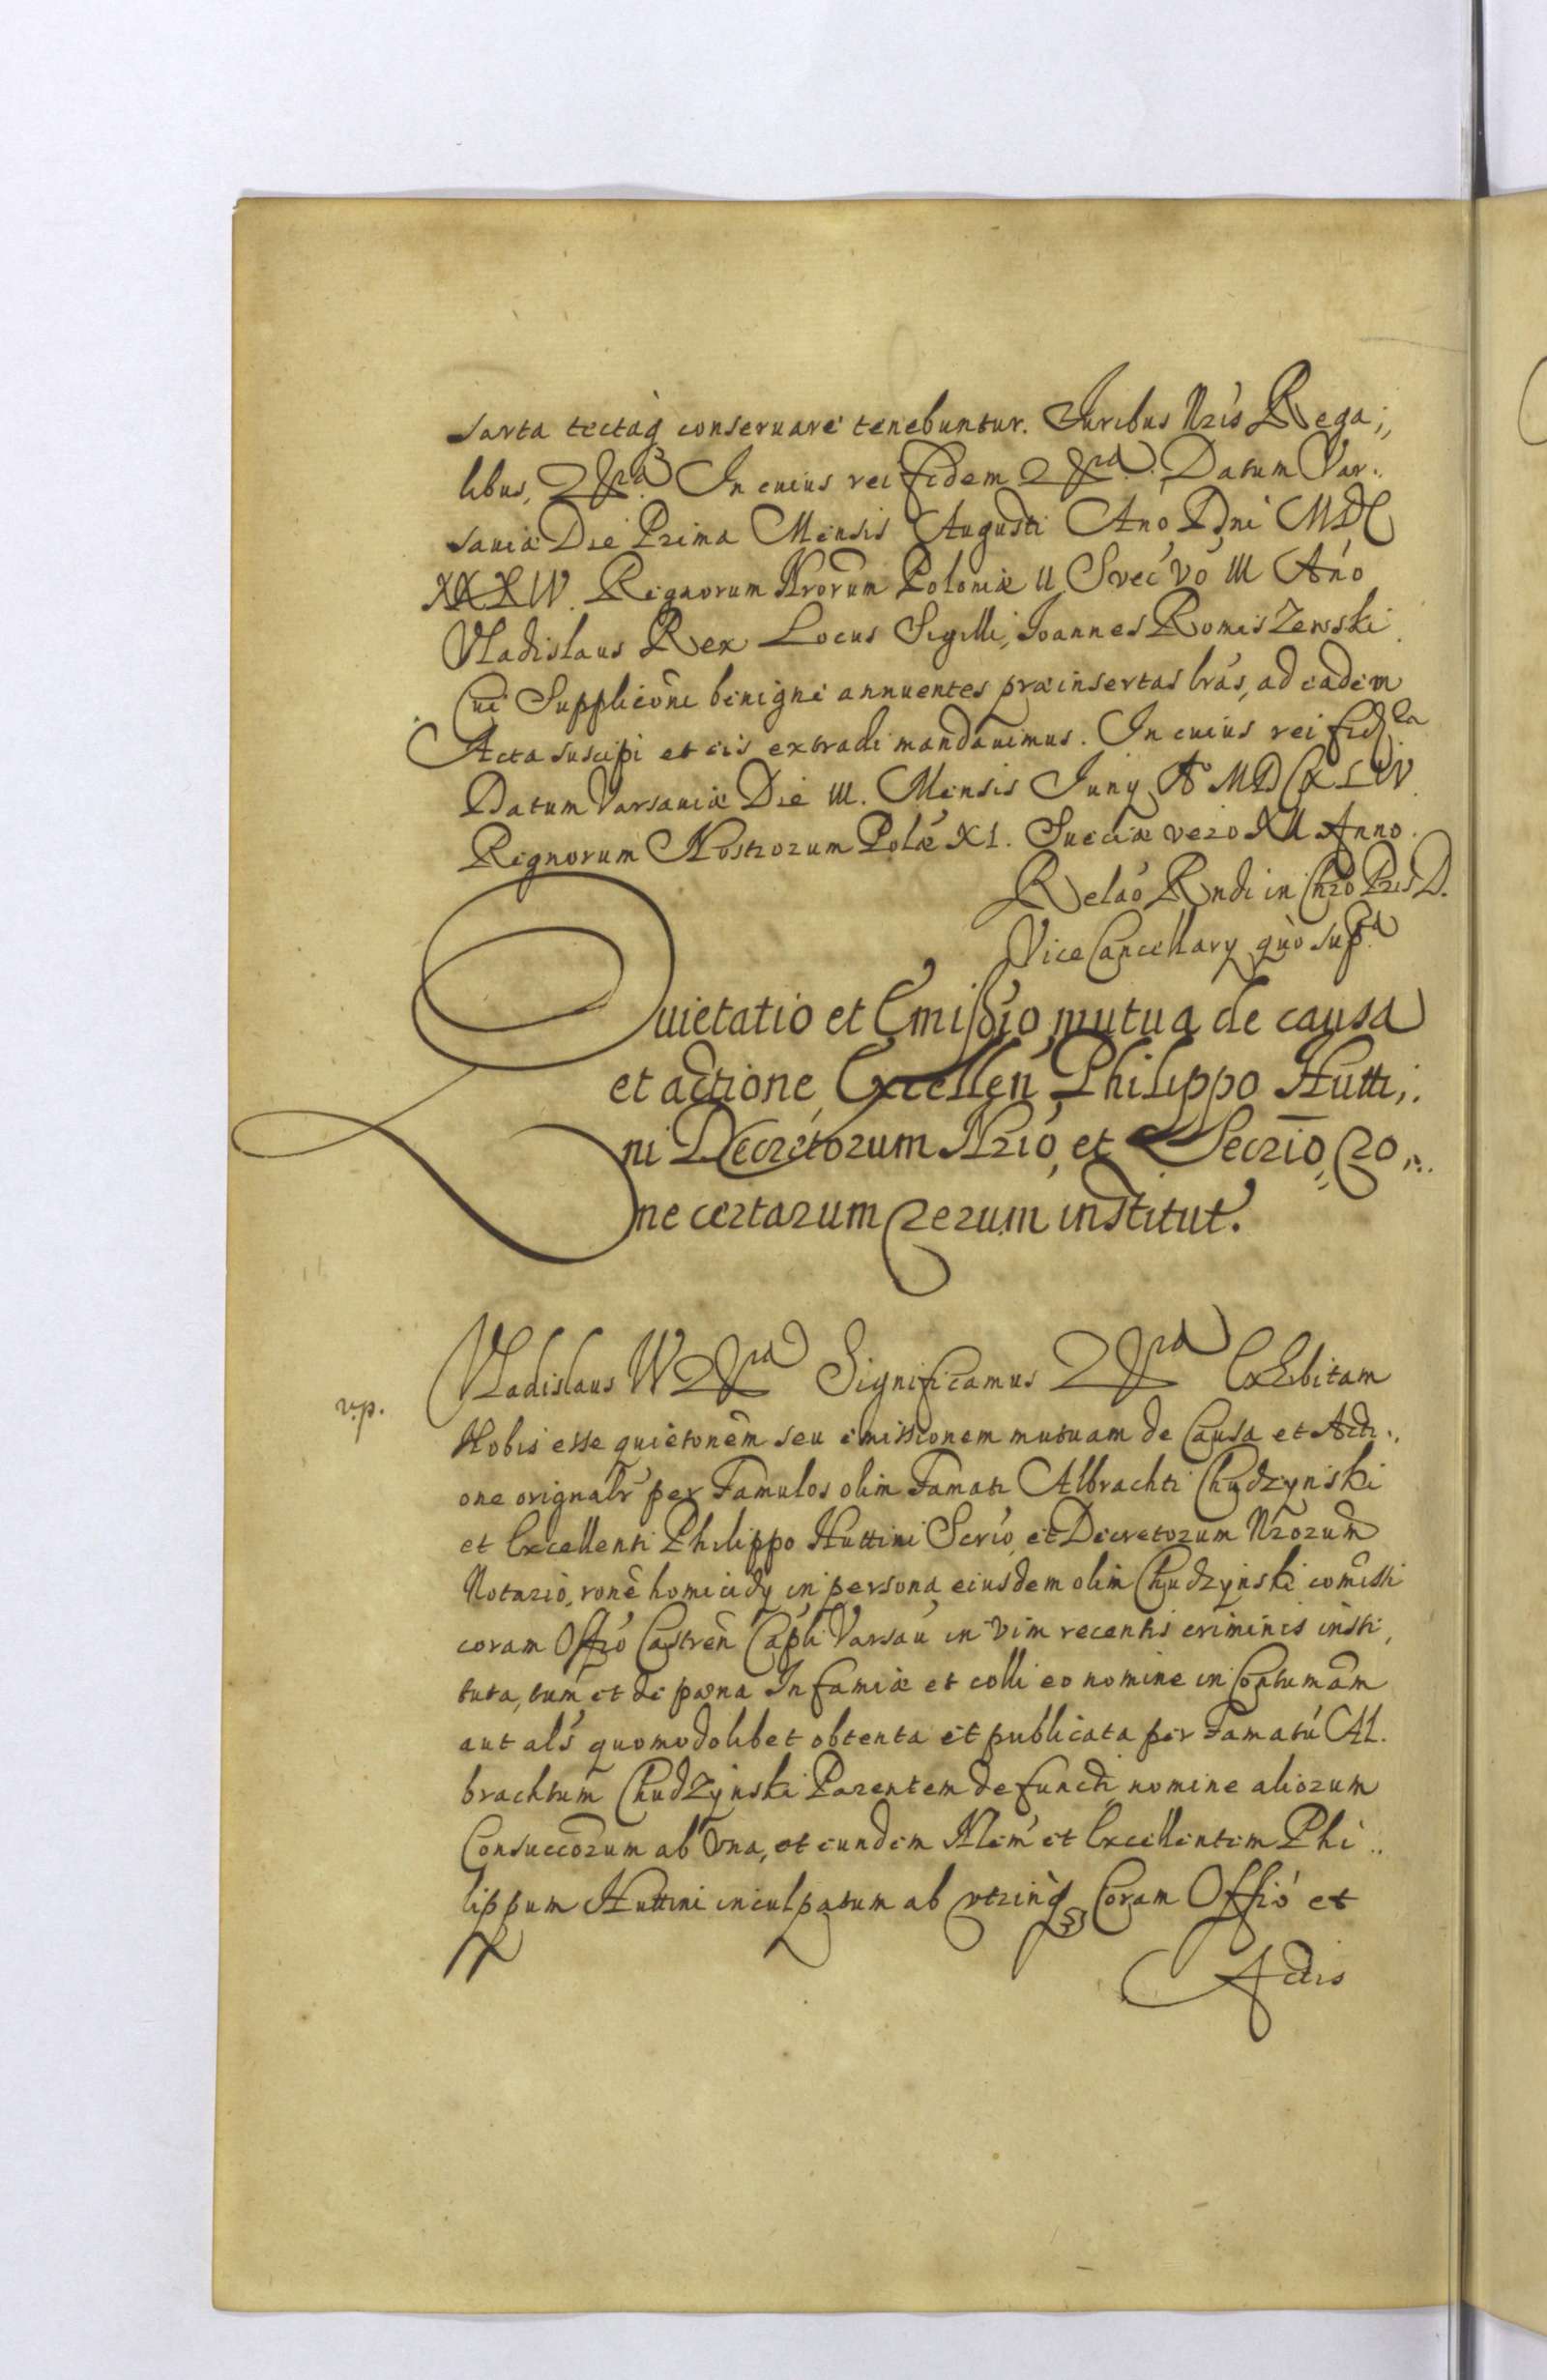 sarta tectaq conseruare tenebuntur. Iuribus Nris Rega;,
libus, &ra In cuius rei fidem &ra. Datum Var..
sauiæ Die Prima Mensis Augusti Ano Dni MDC
XXXIV. Regnorum Nrorum Poloniæ II Svec vo III Ano
Vladislaus Rex Locus Sigilli, Ioannes Romiszewski
Cui Supplicõni benigne annuentes præinsertas lras, ad eadem
Acta suscipi et eis extradi mandauimus. In cuius rei fid
Datum Varsauiæ Die III. Mensis Iuny Ao MDCXLIV.
Regnorum Nostrorum Polæ XI. Sueciæ vero XII Anno.
Relao Rndi in Chro Pris D.
Vice Cancellary quo supa
Quietatio et Emissio mutua de causa
et actione, Excellen Philippo Hutti,.
ni Decretorum Nrio, et Secrio, ro,..
ne certarum rerum institut.
Vladislaus IV &ra Significamus &ra Exhibitam
v.p.
Nobis esse quietonem seu emissionem mutuam de Causa et Acti.,
one orignalr per Famulos olim Famati Albrachti Chudzynski
et Excellenti Philippo Huttini Scrio, et Decretorum Nrorum
Notario, rone homicidy in persona eiusdem olim Chudzynski comissi
coram Offio Castren Capli Varsau in vim recentis criminis insti,
tuta, tum et de pæna Infamiæ et colli eo nomine in Contumam
aut als quomodolibet obtenta et publicata per Famatu Al.
brachtum Chudzynski Parentem defuncti nomine aliorum
Consuccorum ab vna, et eundem Nlem et Excellentem Phi..
lippum Huttini inculpatum ab vtrinq Coram Offio et
Actis